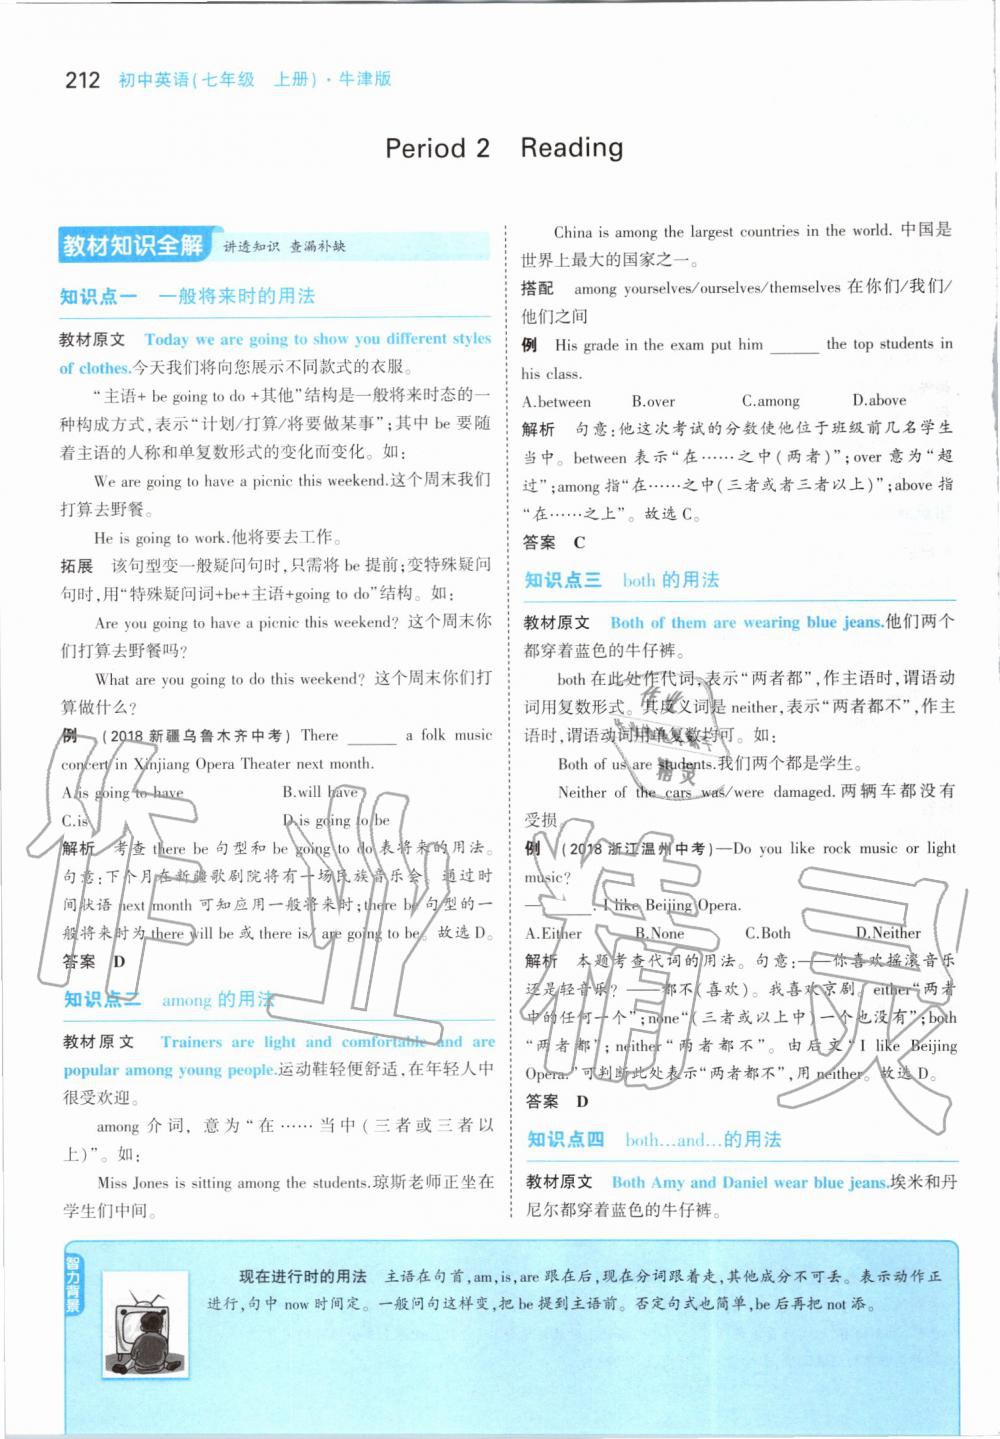 212 初中英语(七年级　上册)·牛津版
Period 2　Reading
教材知识全解 讲透知识 查漏补缺
知识点一　一般将来时的用法
教材原文　Today we are going to show you different styles
of clothes.今天我们将向您展示不同款式的衣服。
“主语+ be going to do +其他”结构是一般将来时态的一
种构成方式,表示“计划/打算/将要做某事”;其中 be 要随
着主语的人称和单复数形式的变化而变化。如:
We are going to have a picnic this weekend.这个周末我们
打算去野餐。
He is going to work.他将要去工作。
拓展　该句型变一般疑问句时,只需将 be 提前;变特殊疑问
句时,用“特殊疑问词+be+主语+going to do”结构。如:
Are you going to have a picnic this weekend? 这个周末你
们打算去野餐吗?
What are you going to do this weekend? 这个周末你们打
算做什么?
例　(2018 新疆乌鲁木齐中考) There ______ a folk music
concert in Xinjiang Opera Theater next month.
A.is going to have　B.will have
C.is　D.is going to be
解析　考查 there be 句型和 be going to do 表将来的用法。
句意:下个月在新疆歌剧院将有一场民族音乐会。通过时
间状语 next month 可知应用一般将来时;there be 句型的一
般将来时为 there will be 或 there is/ are going to be。故选 D。
答案　D
知识点二　among 的用法
教材原文　Trainers are light and comfortable and are
popular among young people.运动鞋轻便舒适,在年轻人中
很受欢迎。
among 介词, 意为“在……当中(三者或三者以
上)”。如:
Miss Jones is sitting among the students.琼斯老师正坐在
学生们中间。
China is among the largest countries in the world. 中国是
世界上最大的国家之一。
搭配　among yourselves/ourselves/themselves 在你们/我们/
他们之间
例　His grade in the exam put him ______ the top students in
his class.
A.between　B.over　C.among　D.above
解析　句意:他这次考试的分数使他位于班级前几名学生
当中。between 表示“在……之中(两者)”;over 意为“超
过”;among 指“在……之中(三者或者三者以上)”;above 指
“在……之上”。故选 C。
答案　C
知识点三　both 的用法
教材原文　Both of them are wearing blue jeans.他们两个
都穿着蓝色的牛仔裤。
both 在此处作代词,表示“两者都”,作主语时,谓语动
词用复数形式。其反义词是 neither,表示“两者都不”,作主
语时,谓语动词用单复数均可。如:
Both of us are students.我们两个都是学生。
Neither of the cars was/were damaged.两辆车都没有
受损。
例　(2018 浙江温州中考)—Do you like rock music or light
music?
—______. I like Beijing Opera.
A.Either　B.None　C.Both　D.Neither
解析　本题考查代词的用法。句意:——你喜欢摇滚音乐
还是轻音乐? ——都不(喜欢)。我喜欢京剧。either“两者
中的任何一个”;none“(三者或以上中)一个也没有”;both
“两者都”;neither“两者都不”。由后文“I like Beijing
Opera.”可判断此处表示“两者都不”,用 neither。故选 D。
答案　D
知识点四　both...and...的用法
教材原文　Both Amy and Daniel wear blue jeans.埃米和丹
尼尔都穿着蓝色的牛仔裤。
智力背景
现在进行时的用法　主语在句首,am,is,are 跟在后,现在分词跟着走,其他成分不可丢。表示动作正
进行,句中 now 时间定。一般问句这样变,把 be 提到主语前。否定句式也简单,be 后再把 not 添。
作业精灵